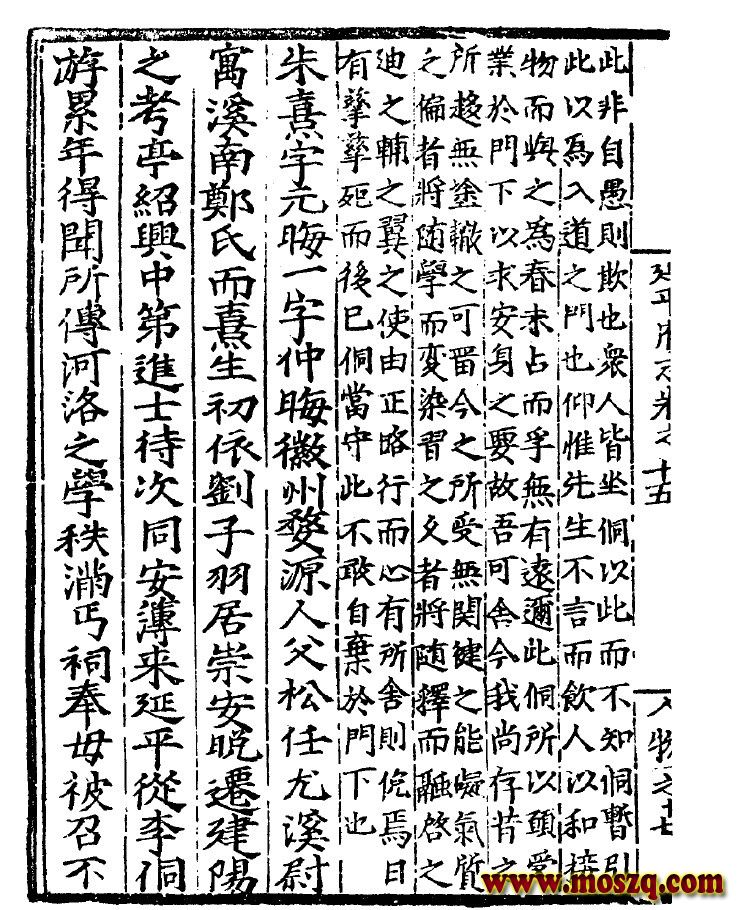 延平府志卷之十五
人物之十七
此非自愚則欺也衆人皆坐侗以此而不知侗暫引
此以為入道之門也仰惟先生不言而飲人以和接
物而與之為春未占而孚無有遠邇此侗所以願受
業於門下以求安身之要故吾可舍今我尚存昔之
所趨無塗轍之可畱今之所受無関鍵之能礙氣質
之偏者將随學而変染習之久者將随釋而融啓之
迪之輔之翼之使由正路行而心有所舍則俛焉日
有孳孳死而後已侗當守此不敢自棄於門下也
朱熹字元晦一字仲晦徽州婺源人父松任尤溪尉
寓溪南鄭氏而熹生初依劉子羽居崇安晚遷建陽
之考亭紹興中第進士待次同安簿来延平從李侗
游累年得聞所傳河洛之學秩滿丐祠奉母被召不
www.moszq.com